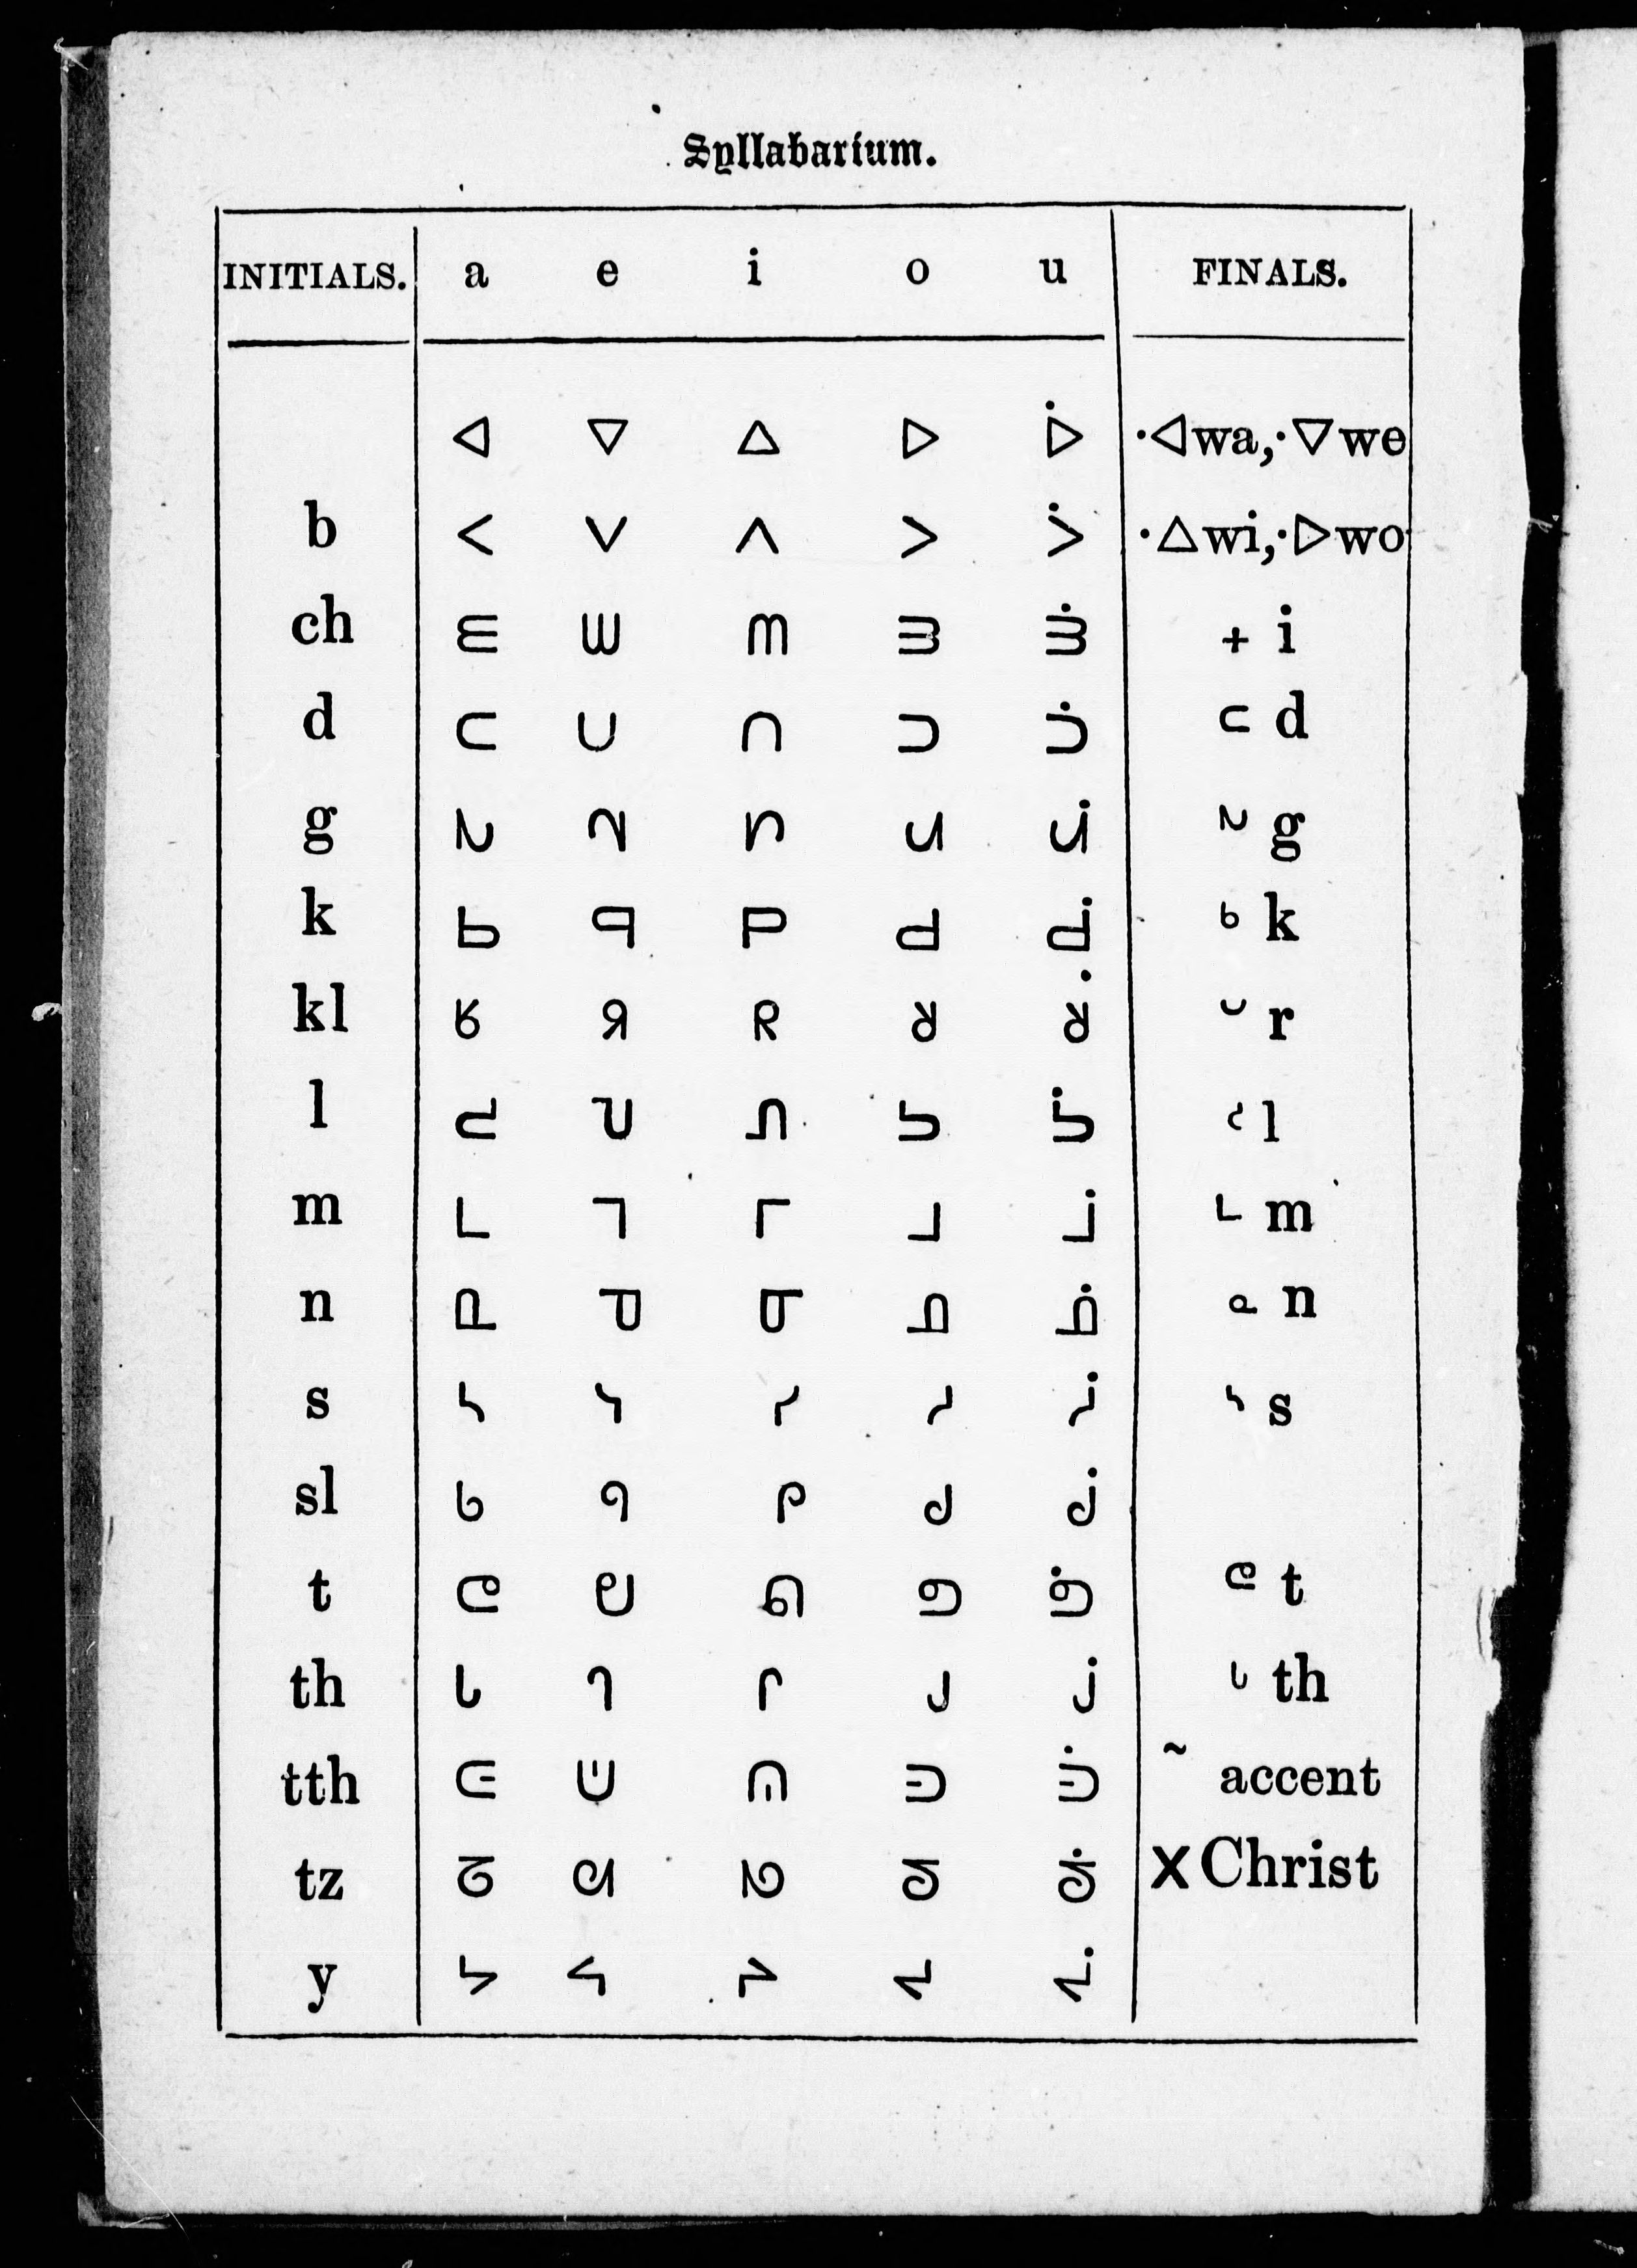 Syllabarium.
INITIALS. a e i o u FINALS.
ᐊ ᐁ ᐃ ᐅ ᐆ ·ᐊwa,·ᐁwe
b ᐸ ᐯ ᐱ ᐳ ᐴ ·ᐃwi,·ᐅwo
ch ᗴ ᗯ ᗰ ᗱ ᗱ̇ ᐩ i
d ᑕ ᑌ ᑎ ᑐ ᑑ ᑦ d
g ᕋ ᕃ ᕆ ᕈ ᕉ ᕐ g
k ᑲ ᑫ ᑭ ᑯ ᑰ ᒃ k
kl ᖉ ᖆ ᖇ ᖈ ᖈ̇ ᐡ r
l ᓚ ᓓ ᓕ ᓗ ᓘ ᓪ l
m ᒪ ᒣ ᒥ ᒧ ᒨ ᒻ m
n ᓇ ᓀ ᓂ ᓄ ᓅ ᓐ n
s ᓴ ᓭ ᓯ ᓱ ᓲ ᔅ s
sl ᖚ ᖗ ᖘ ᖙ ᖙ̇
t ᕮ ᕫ ᕬ ᕭ ᕭ̇ ᕮ t
th ᒐ ᒉ ᒋ ᒍ ᒎ ᒡ th
tth ᕪ ᕧ ᕨ ᕩ ᕩ̇ ˜ accent
tz ᖎ ᖋ ᖌ ᖍ ᖍ̇ x Christ
y ᔭ ᔦ ᔨ ᔪ ᔫ